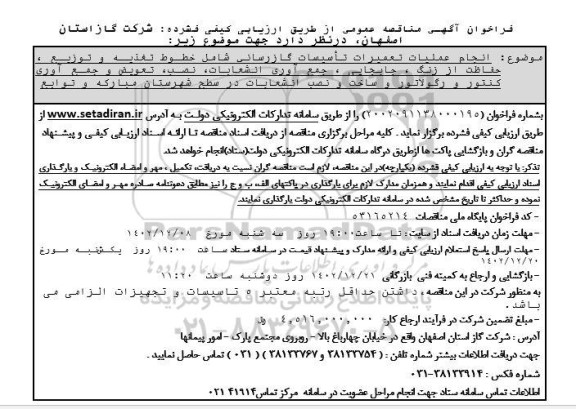 فراخوان آگهی مناقصه عمومی از طریق ارزیابی کیفی فشرده: شرکت گاز استان
اصفهان، درنظر دارد جهت موضوع زیر:
موضوع: انجام عملیات تعمیرات تأسیسات گازرسانی شامل خطوط تغذیه و توزیع ،
حفاظت از زنگ ، جابجایی ، جمع آوری انشعابات، نصب، تعویض و جمع آوری
کنتور و رگولاتور و ساخت و نصب انشعابات در سطح شهرستان مبارکه و توابع
بشماره فراخوان (۲۰۰۲۰۹۱۱۳۸۰۰۰۱۹۵) را از طریق سامانه تدارکات الکترونیکی دولت به آدرس www.setadiran.ir از
طریق ارزیابی کیفی فشرده برگزار نماید . کلیه مراحل برگزاری مناقصه از دریافت اسناد مناقصه تا ارائه اسناد ارزیابی کیفی و پیشنهاد
مناقصه گران و بازگشایی پاکت ها از طریق درگاه سامانه تدارکات الکترونیکی دولت(ستاد)انجام خواهد شد.
تذکر: با توجه به ارزیابی کیفی فشرده (یکپارچه)در این مناقصه، لازم است مناقصه گران نسبت به دریافت، تکمیل ، مهر و امضاء الکترونیک و بارگذاری
اسناد ارزیابی کیفی اقدام نمایند و همزمان مدارک لازم برای بارگذاری در پاکتهای الف، ب و ج را نیز مطابق دعوتنامه صادره مهر و امضای الکترونیک
نموده و حداکثر تا تاریخ مشخص شده در سامانه تدارکات الکترونیکی دولت بارگذاری نمایند.
- کد فراخوان پایگاه ملی مناقصات ۵۳۱۶۵۲۱۴
-مهلت زمان دریافت اسناد از سایت: تا ساعت ۱۹:۰۰ روز سه شنبه مورخ ۱۴۰۲/۱۲/۰۸
- مهلت ارسال پاسخ استعلام ارزیابی کیفی و ارائه مدارک و پیشنهاد قیمت در سامانه ستاد ساعت ۱۹:۰۰ روز یکشنبه مورخ
۱۴۰۲/۱۲/۲۰
-بازگشایی و ارجاع به کمیته فنی بازرگانی ۱۴۰۲/۱۲/۲۱ روز دوشنبه ساعت ۱۱:۲۰
به منظور شرکت در این مناقصه ، داشتن حداقل رتبه معتبر ۵ تاسیسات و تجهیزات الزامی می
باشد.
-مبلغ تضمین شرکت در فرآیند ارجاع کار: ۴,۵۱۶,۰۰۰,۰۰۰ ریال
آدرس : شرکت گاز استان اصفهان واقع در خیابان چهارباغ بالا – روبروی مجتمع پارک - امور پیمانها
جهت دریافت اطلاعات بیشتر شماره تلفن : ( ۳۸۱۳۳۷۵۴ و ۳۸۱۳۳۷۶۷ ) ( ۰۳۱ ) تماس حاصل نمایید .
شماره فکس : ۳۸۱۳۳۹۱۴-۰۳۱
اطلاعات تماس سامانه ستاد جهت انجام مراحل عضویت در سامانه مرکز تماس۴۱۹۱۴ ۰۲۱